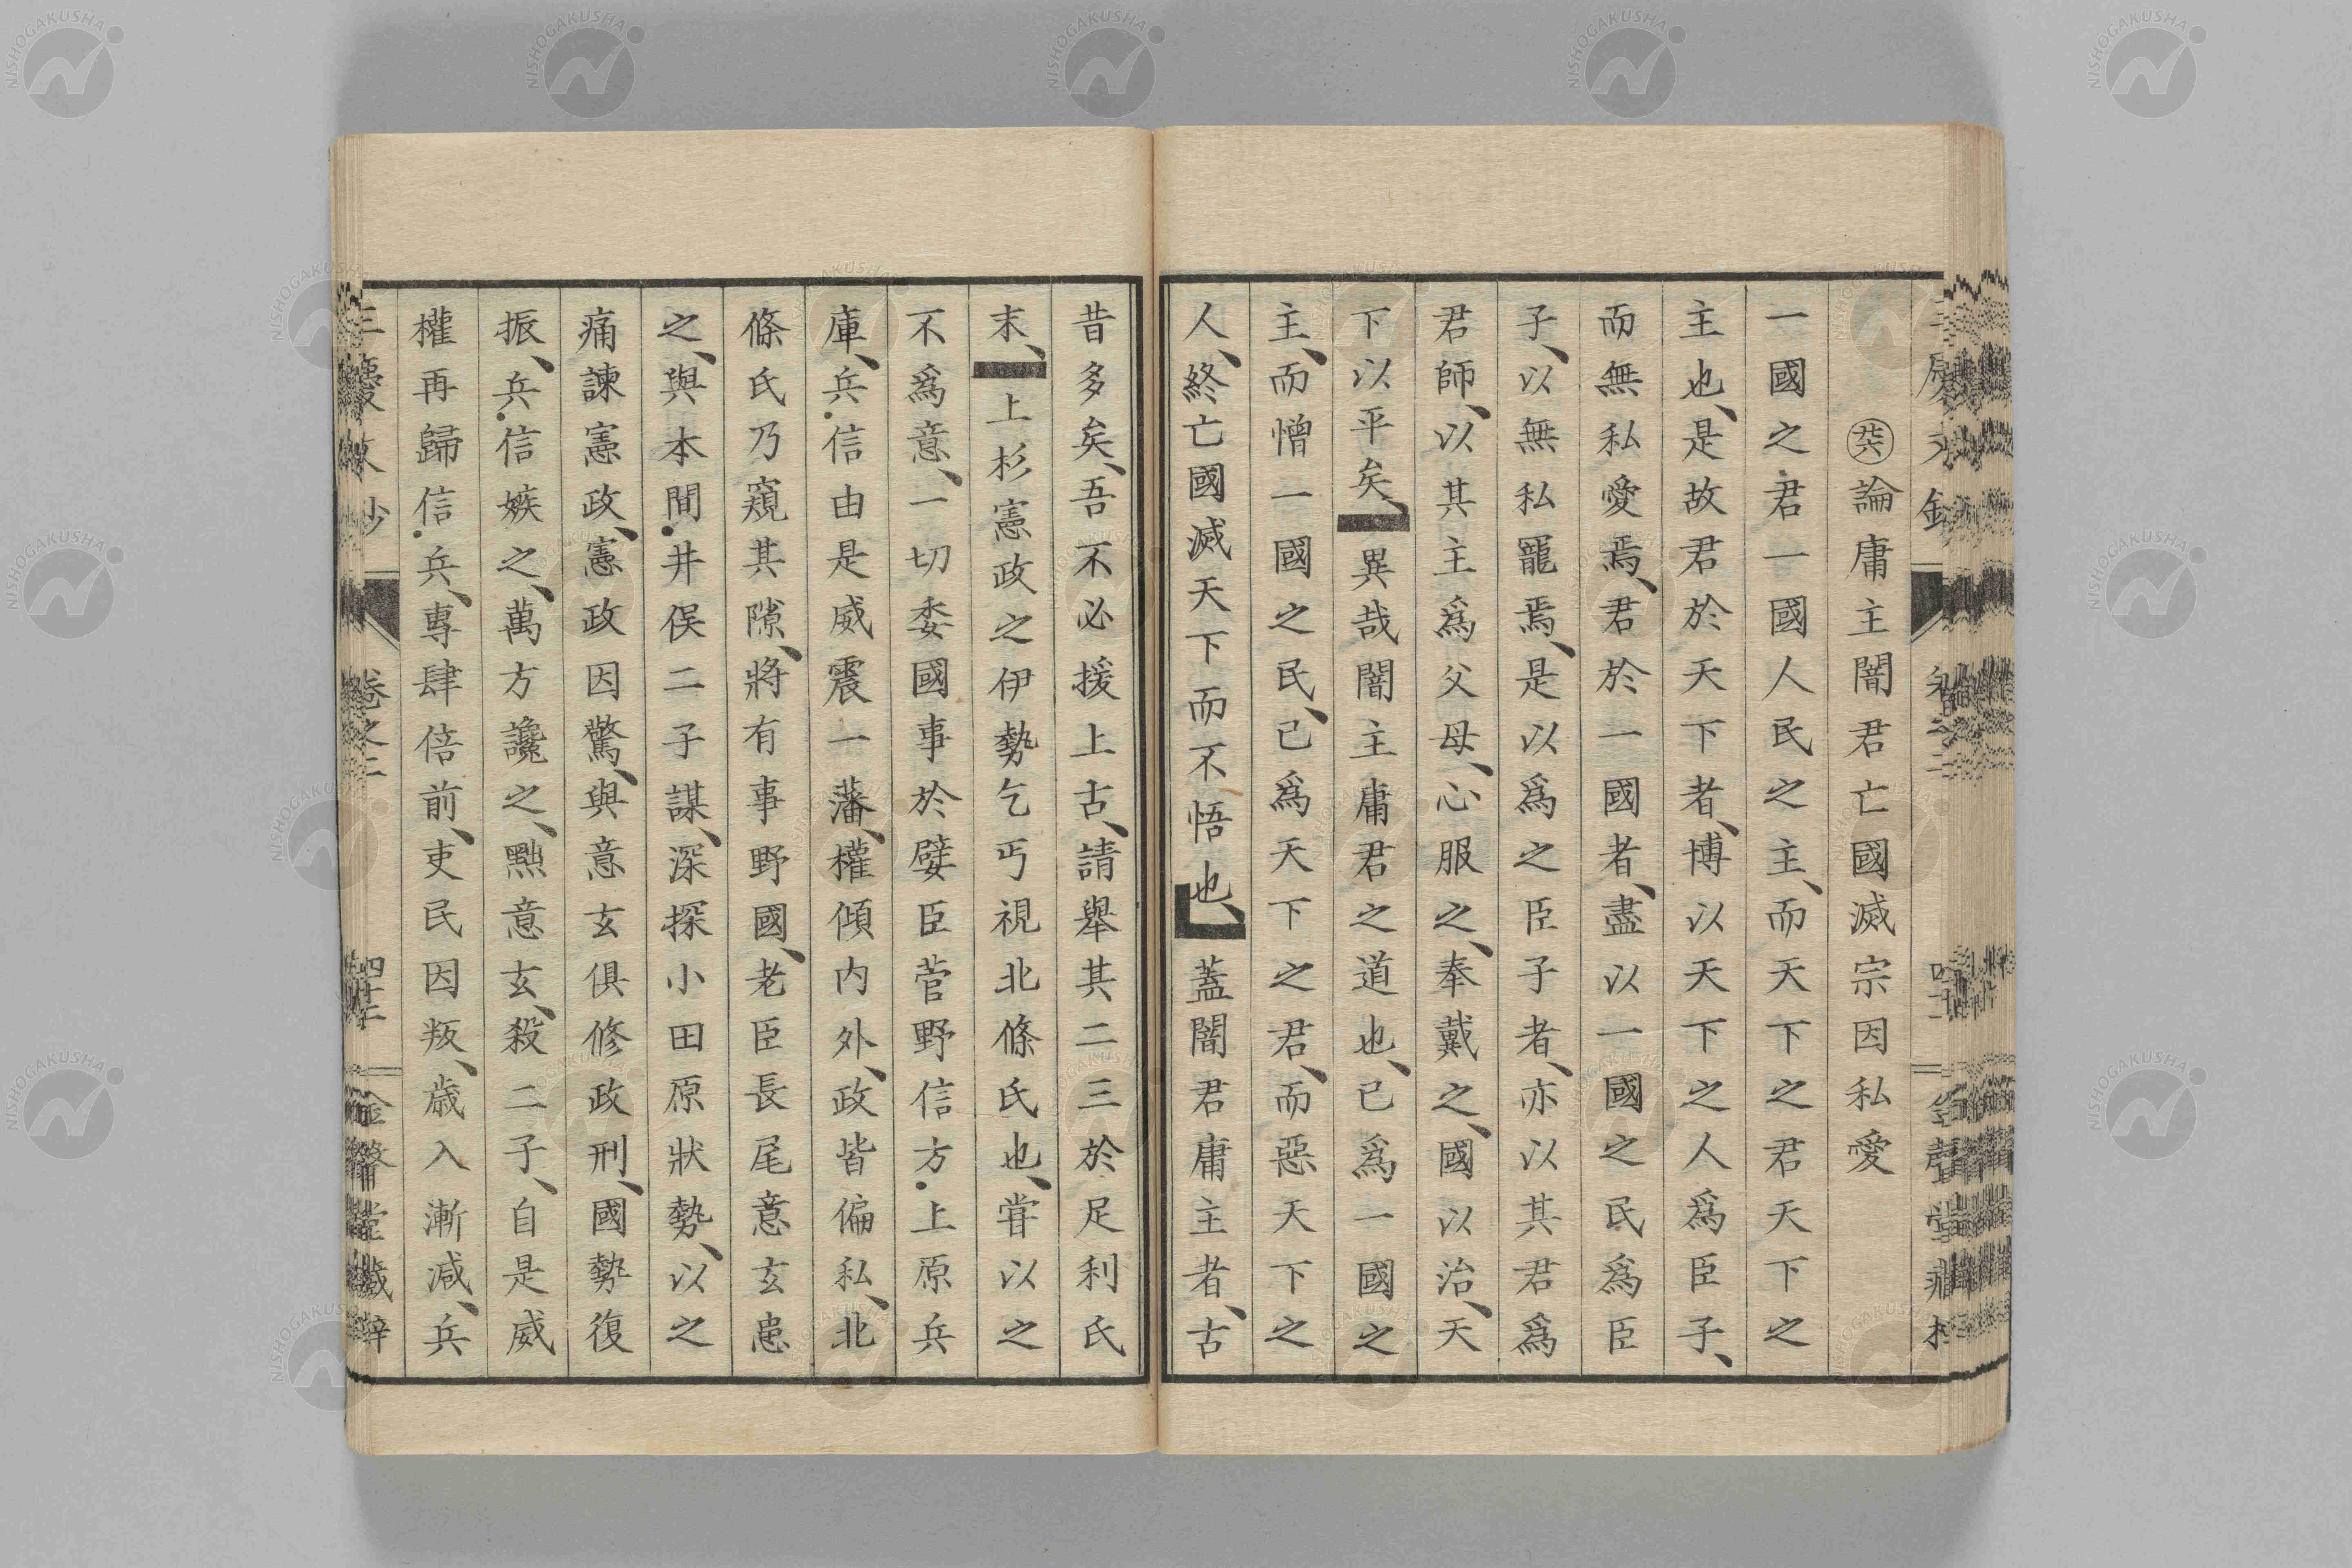 論庸主闇君亡國滅宗因私愛
一國之君一國人民之主、而天下之君天下之
主也、是故君於天下者、博以天下之人爲臣子、
而無私愛焉、君於一國者、盡以一國之民爲臣
子、以無私寵焉、是以爲之臣子者、亦以其君爲
君師、以其主爲父母、心服之、奉戴之、國以治、天
下以平矣、異哉闇主庸君之道也、已爲一國之
主、而憎一國之民、已爲天下之君、而惡天下之
人、終亡國滅天下而不悟也、蓋闇君庸主者、古
昔多矣、吾不必援上古、請舉其二三於足利氏
末、上杉憲政之伊勢乞丐視北條氏也、甞以之
不爲意、一切委國事於嬖臣菅野信方・上原兵
庫、兵・信由是威震一藩、權傾内外、政皆偏私、北
條氏乃窺其隙、將有事野國、老臣長尾意玄患
之、與本間・井俣二子謀、深探小田原狀勢、以之
痛諫憲政、憲政因驚、與意玄俱修政刑、國勢復
振、兵・信嫉之、萬方讒之、黜意玄、殺二子、自是威
權再歸信・兵、專肆倍前、吏民因叛、歳入漸減、兵
卷之二
四十二
金聲堂藏梓
NISHOGAKUSHA